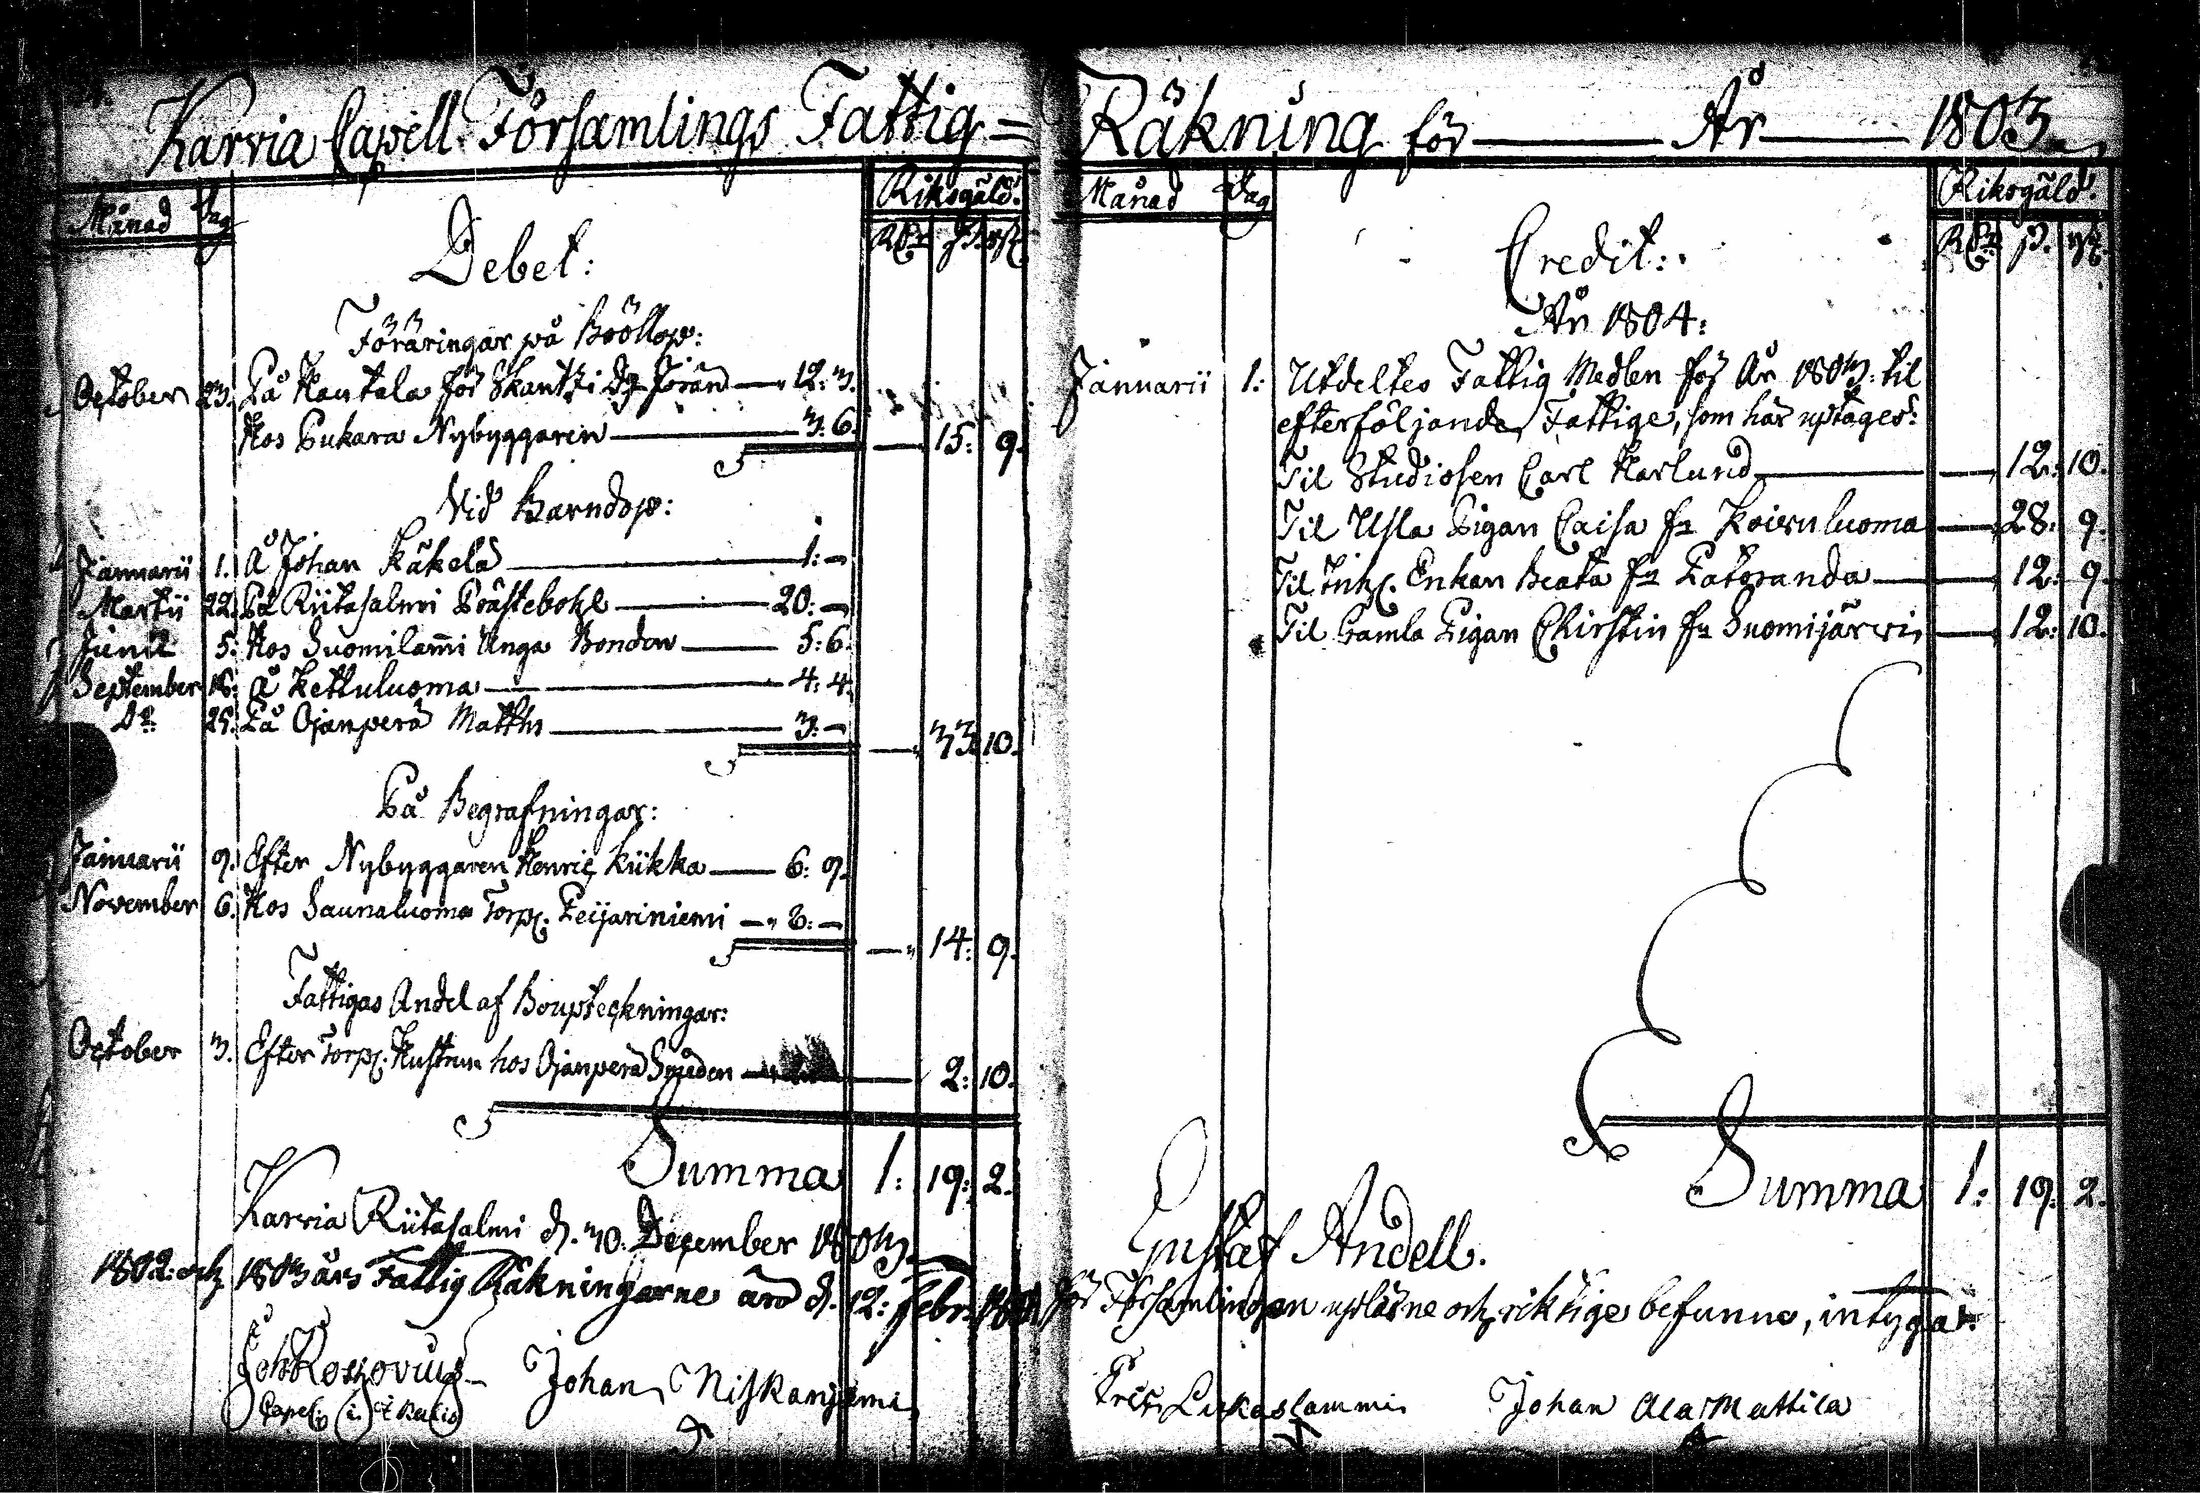 Karvia Capell Församlings Fattig=
Månad Dag Riksgäld:
Rdr ß. rst.
Debet:
Föräringar på Bröllop:
October 23. På Kantala för Skantzi Dg. Jöran — 12: 3.
Hos Pukara Nybyggaren — 3: 6. — 15: 9.
Vid Barndop:
Januarii 1. Å Johan Käkelä — 1: —
Martii 22. På Riitasalmi Prästebohl — 20: —
Junii 5. Hos Suomilam̄i Unga Bonden — 5: 6.
September 18. Å Kettuluoma — 4: 4.
Do 25. På Ojanperä Matths — 3: — — 33. 10.
På Begrafningar:
Januarii 9. Efter Nybyggaren Henric Kiikka — 6: 9.
November 6. Hos Saunaluoma Torp. Peijariniemi — 8: — — 14: 9.
Fattigas Andel af Boupteckningar:
October 3. Efter Torp. Hustrun hos Ojanperä Smeden — 2: 10.
Summa 1: 19: 2.
Karvia Riitasalmi d. 30. December 1803.
1802: och 1803 års Fattig Räkningarne äro d. 12: Febr.
Joh Roskovius Johan Niskaniemi
Räkning för — År — 1803
Månad Dag Riksgäld:
Rdr ß. rst.
Credit:
År 1804:
Januarii 1: Utdeltes Fattig Medlen för År 1803: til
efterföljande Fattige, som här uptages:
Til Studiosen Carl Karlund — 12: 10.
Til Usla Pigan Caisa fr Koivuluoma — 28: 9.
Til Inhs. Enkan Beata fr Patoranda — 12: 9.
Til Gamla Pigan Chirstin fr Suomijärvi — 12: 10.
Summa 1: 19: 2.
Gustaf Andell.
för Församlingen upläsne och riktige befunne, intygar:
Lukaslammi Johan Ala Mattila